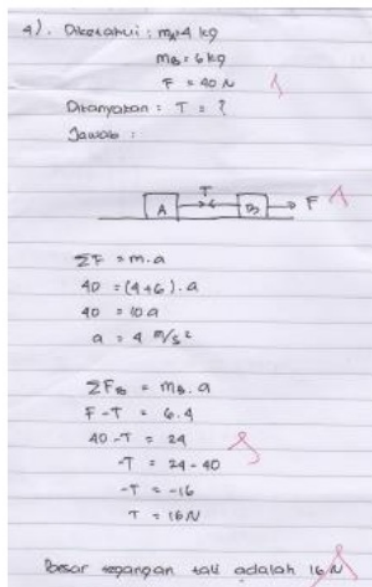 4). Diketahui : mA = 4 kg
mB = 6 kg
F = 40 N
Ditanyakan : T = ?
Jawab :
T
A B F
ΣF = m.a
40 = (4+6) . a
40 = 10 a
a = 4 m/s²
ΣFB = mB . a
F - T = 6.4
40 - T = 24
-T = 24 - 40
-T = -16
T = 16 N
Besar tegangan tali adalah 16 N